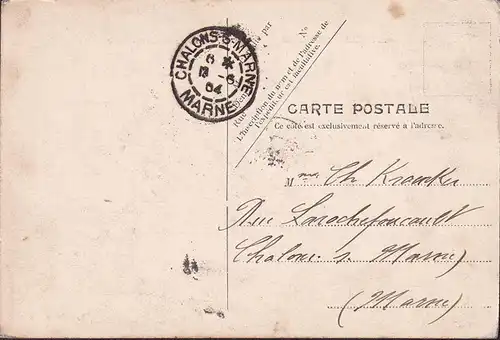 CHALONS-S-MARNE
6 *
13 -6
04
MARNE
Nº
par
L'inscription du nom et de l'adresse de
l'expéditeur est facultative.
CARTE POSTALE
Ce côté est exclusivement réservé à l'adresse.
Mme Ch
Rue Larochefoucault
Chalons s. Marne
(Marne)